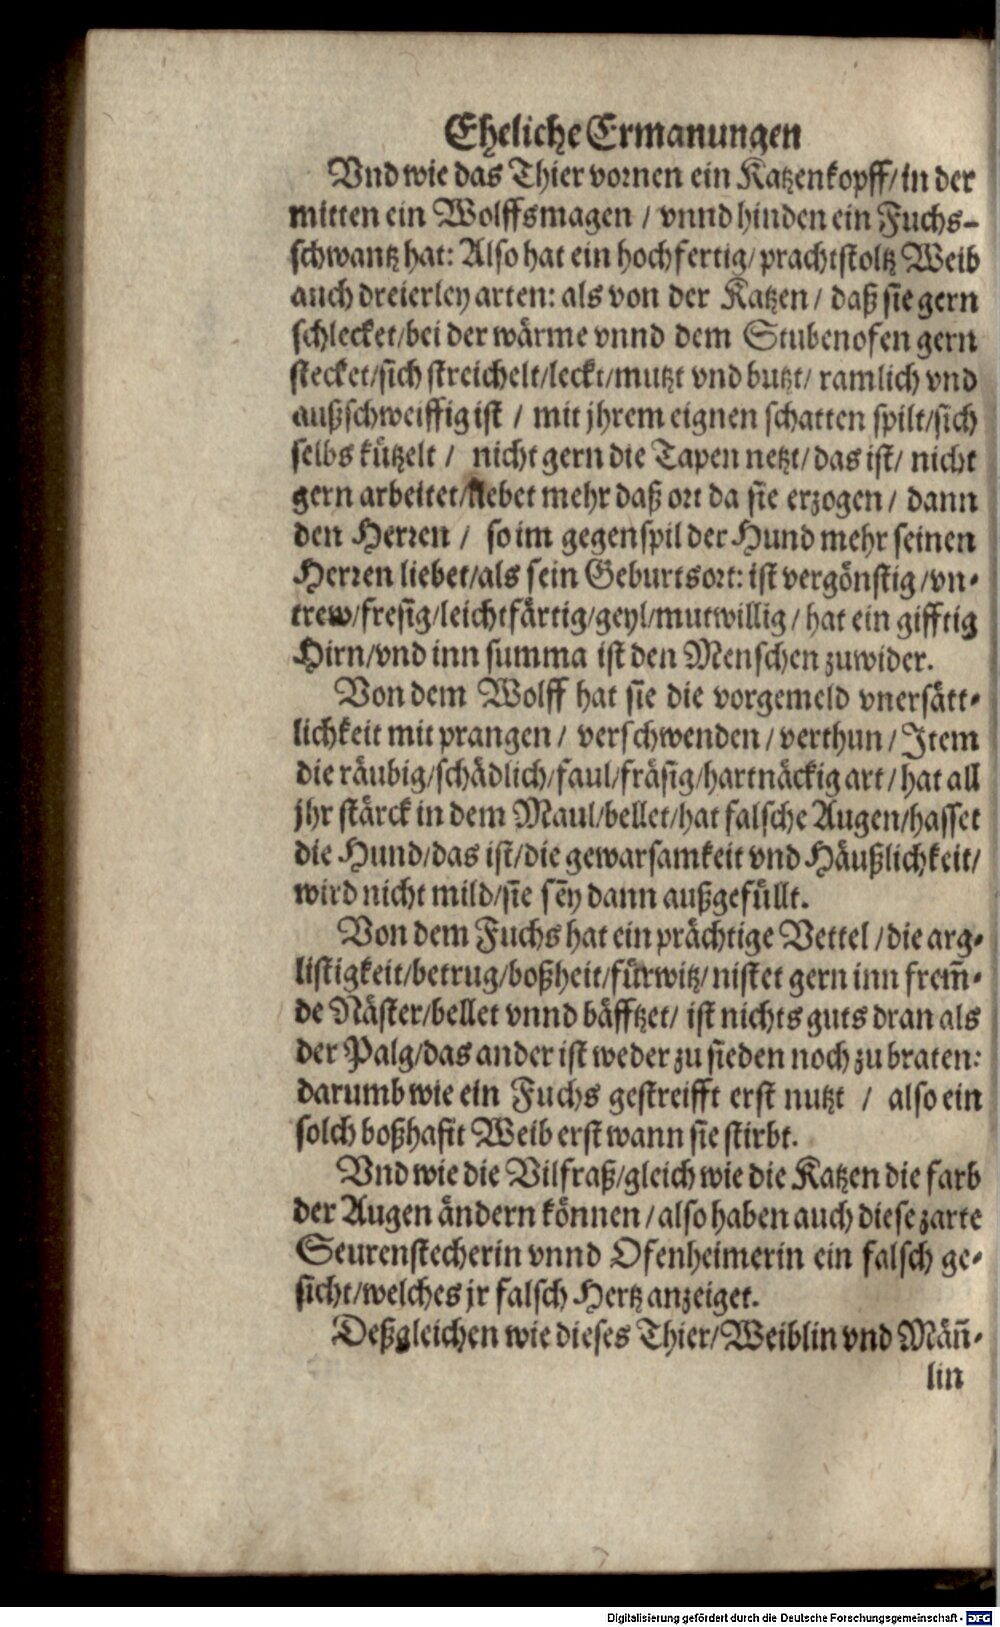 Eheliche Ermanungen
Vnd wie das Thier vornen ein Katzenkopff/ in der
mitten ein Wolffsmagen / vnnd hinden ein Fuchs-
schwantz hat: Also hat ein hochfertig/ prachtstoltz Weib
auch dreierley arten: als von der Katzen / daß sie gern
schlecket/bei der wärme vnnd dem Stubenofen gern
stecket/sich streichelt/leckt/mutzt vnd butzt/ ramlich vnd
außschweiffig ist / mit jhrem eignen schatten spilt/sich
selbs kützelt / nicht gern die Tapen netzt/das ist/ nicht
gern arbeitet/liebet mehr daß ort da sie erzogen / dann
den Herren / so im gegenspil der Hund mehr seinen
Herren liebet/als sein Geburtsort: ist vergönstig/vn-
trew/fresig/leichtfärtig/geyl/mutwillig/ hat ein gifftig
Hirn/vnd inn summa ist den Menschen zuwider.
Von dem Wolff hat sie die vorgemeld vnersätt-
lichkeit mit prangen / verschwenden/ verthun / Item
die räubig/schädlich/faul/fräsig/hartnäckig art / hat all
jhr stärck in dem Maul/bellet/hat falsche Augen/hasset
die Hund/das ist/die gewarsamkeit vnd Häußlichkeit/
wird nicht mild/sie sey dann außgefüllt.
Von dem Fuchs hat ein prächtige Vettel /die arg-
listigkeit/betrug/boßheit/fürwitz/ nistet gern inn frem̃-
de Näster/bellet vnnd bäfftzet/ ist nichts guts dran als
der Palg/das ander ist weder zu sieden noch zu braten:
darumb wie ein Fuchs gestreifft erst nutzt / also ein
solch boßhafit Weib erst wann sie stirbt.
Vnd wie die Vilfraß/gleich wie die Katzen die farb
der Augen ändern können / also haben auch diese zarte
Seurenstecherin vnnd Ofenheimerin ein falsch ge-
sicht/welches jr falsch Hertz anzeiget.
Deßgleichen wie dieses Thier/Weiblin vnd Män̄-
lin
Digitalisierung gefördert durch die Deutsche Forschungsgemeinschaft - DFG